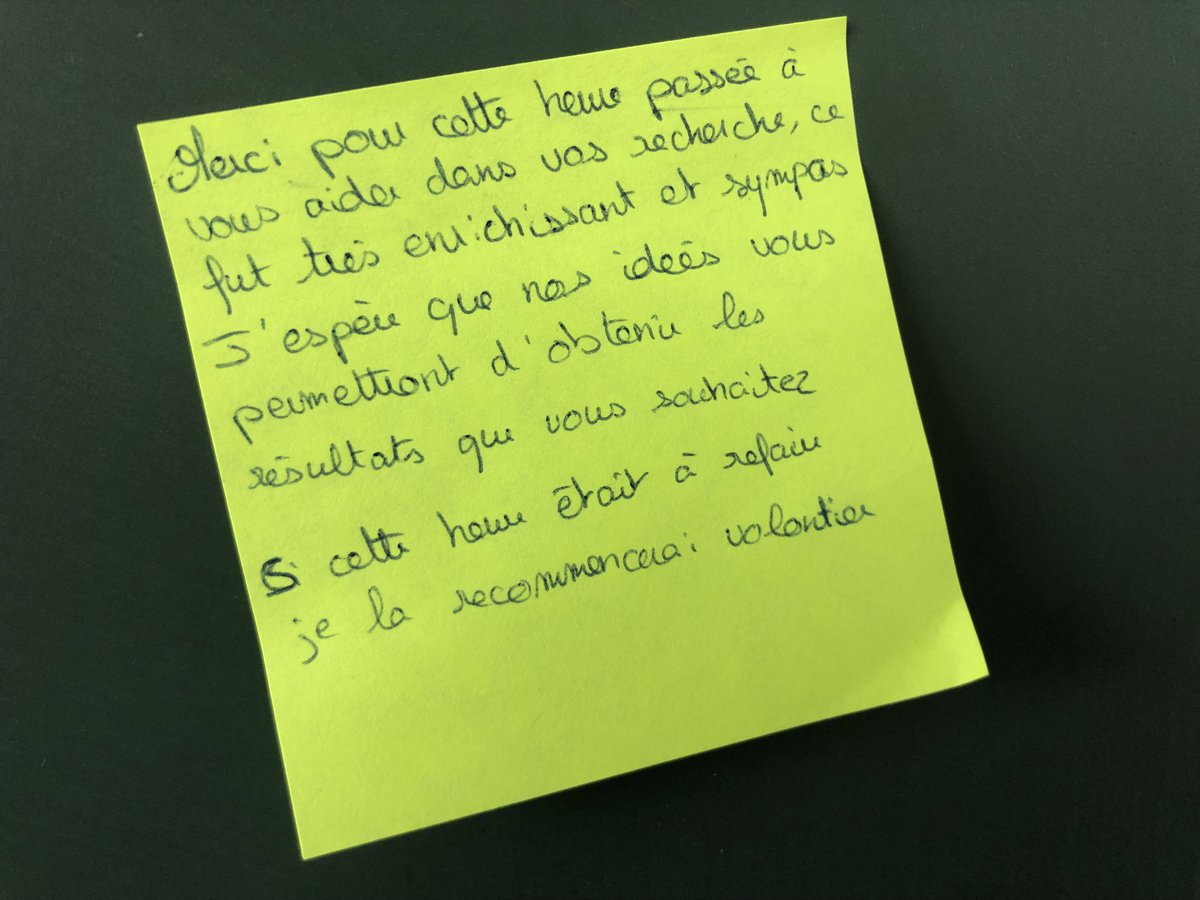 Merci pour cette heure passée à
vous aider dans vos recherche, ce
fut très enrichissant et sympas
J'espère que nos idées vous
permettront d'obtenir les
résultats que vous souhaitez
Si cette heure était à refaire
je la recommencerai volontier